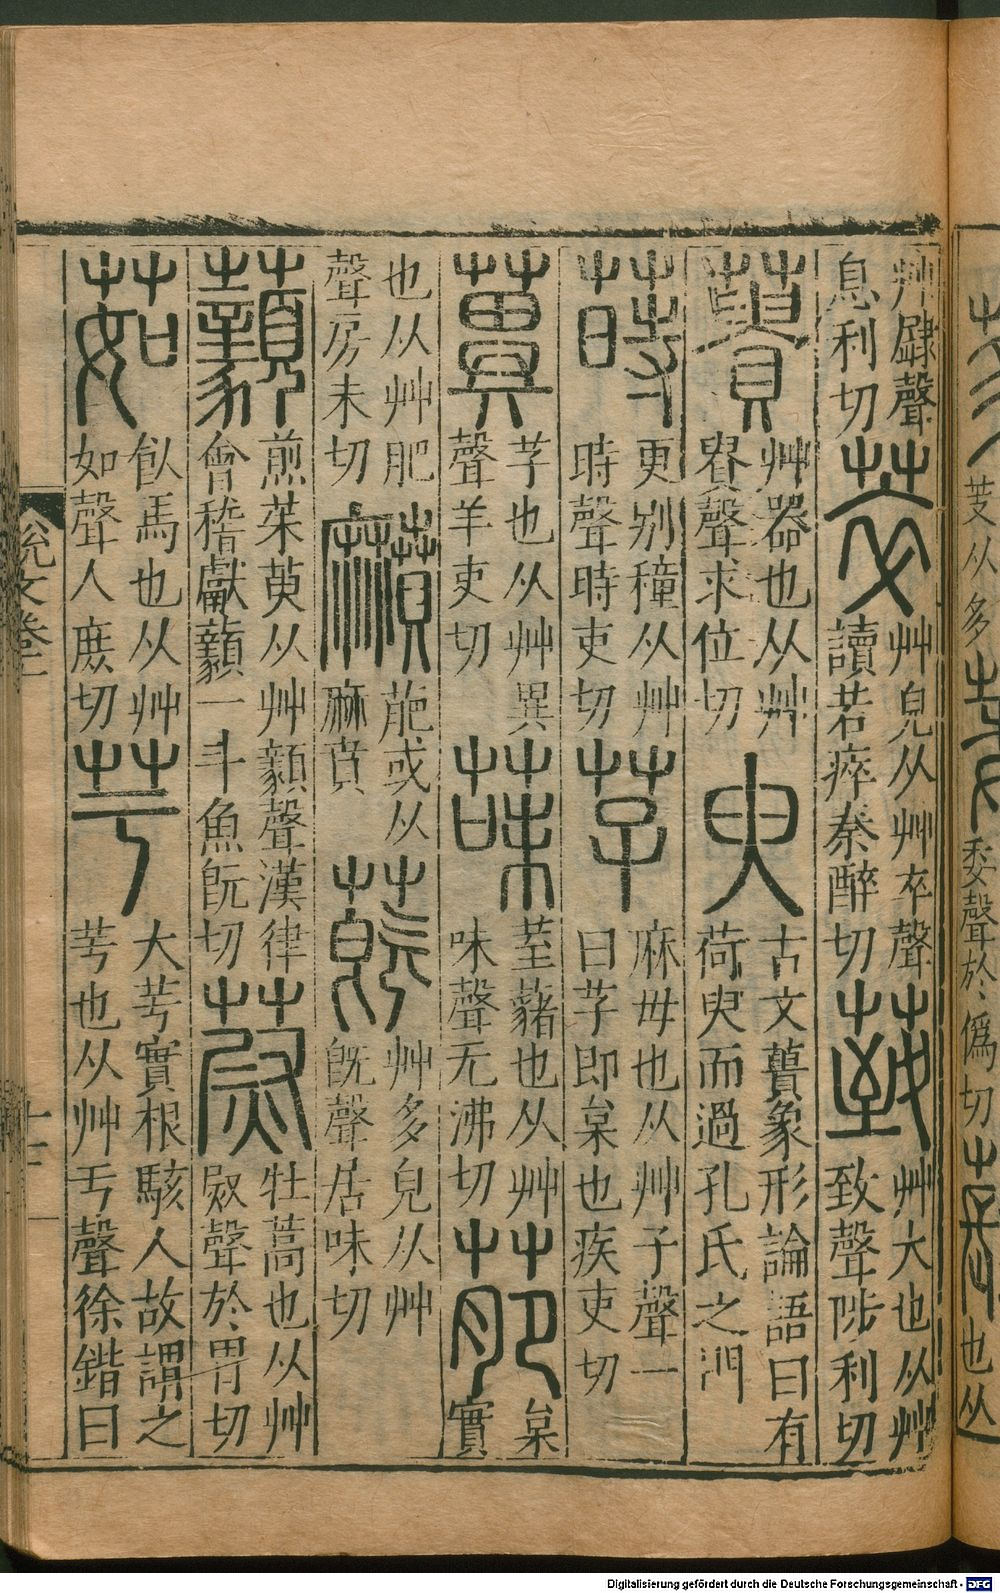 艸肆聲
息利切
萃
艸皃从艸卒聲
讀若瘁秦醉切
䓌
艸大也从艸
致聲陟利切
蕢
艸器也从艸
䝿聲求位切
臾
古文蕢象形論語曰有
荷臾而過孔氏之門
蒔
更别穜从艸
時聲時吏切
芓
麻毋也从艸子聲一
曰芓即枲也疾吏切
䔬
芓也从艸異
聲羊吏切
菋
荎藸也从艸
味聲无沸切
萉
枲
實
也从艸肥
聲房未切
𪎰
萉或从
麻賁
蔇
艸多皃从艸
旣聲居味切
藙
煎茱萸从艸顡聲漢律
會稽獻藙一斗魚旣切
蔚
牡蒿也从艸
㷉聲於胃切
茹
飤馬也从艸
如聲人庶切
芌
大芌實根駭人故謂之
芌也从艸亏聲徐鍇曰
說文卷
Digitalisierung gefördert durch die Deutsche Forschungsgemeinschaft - DFG